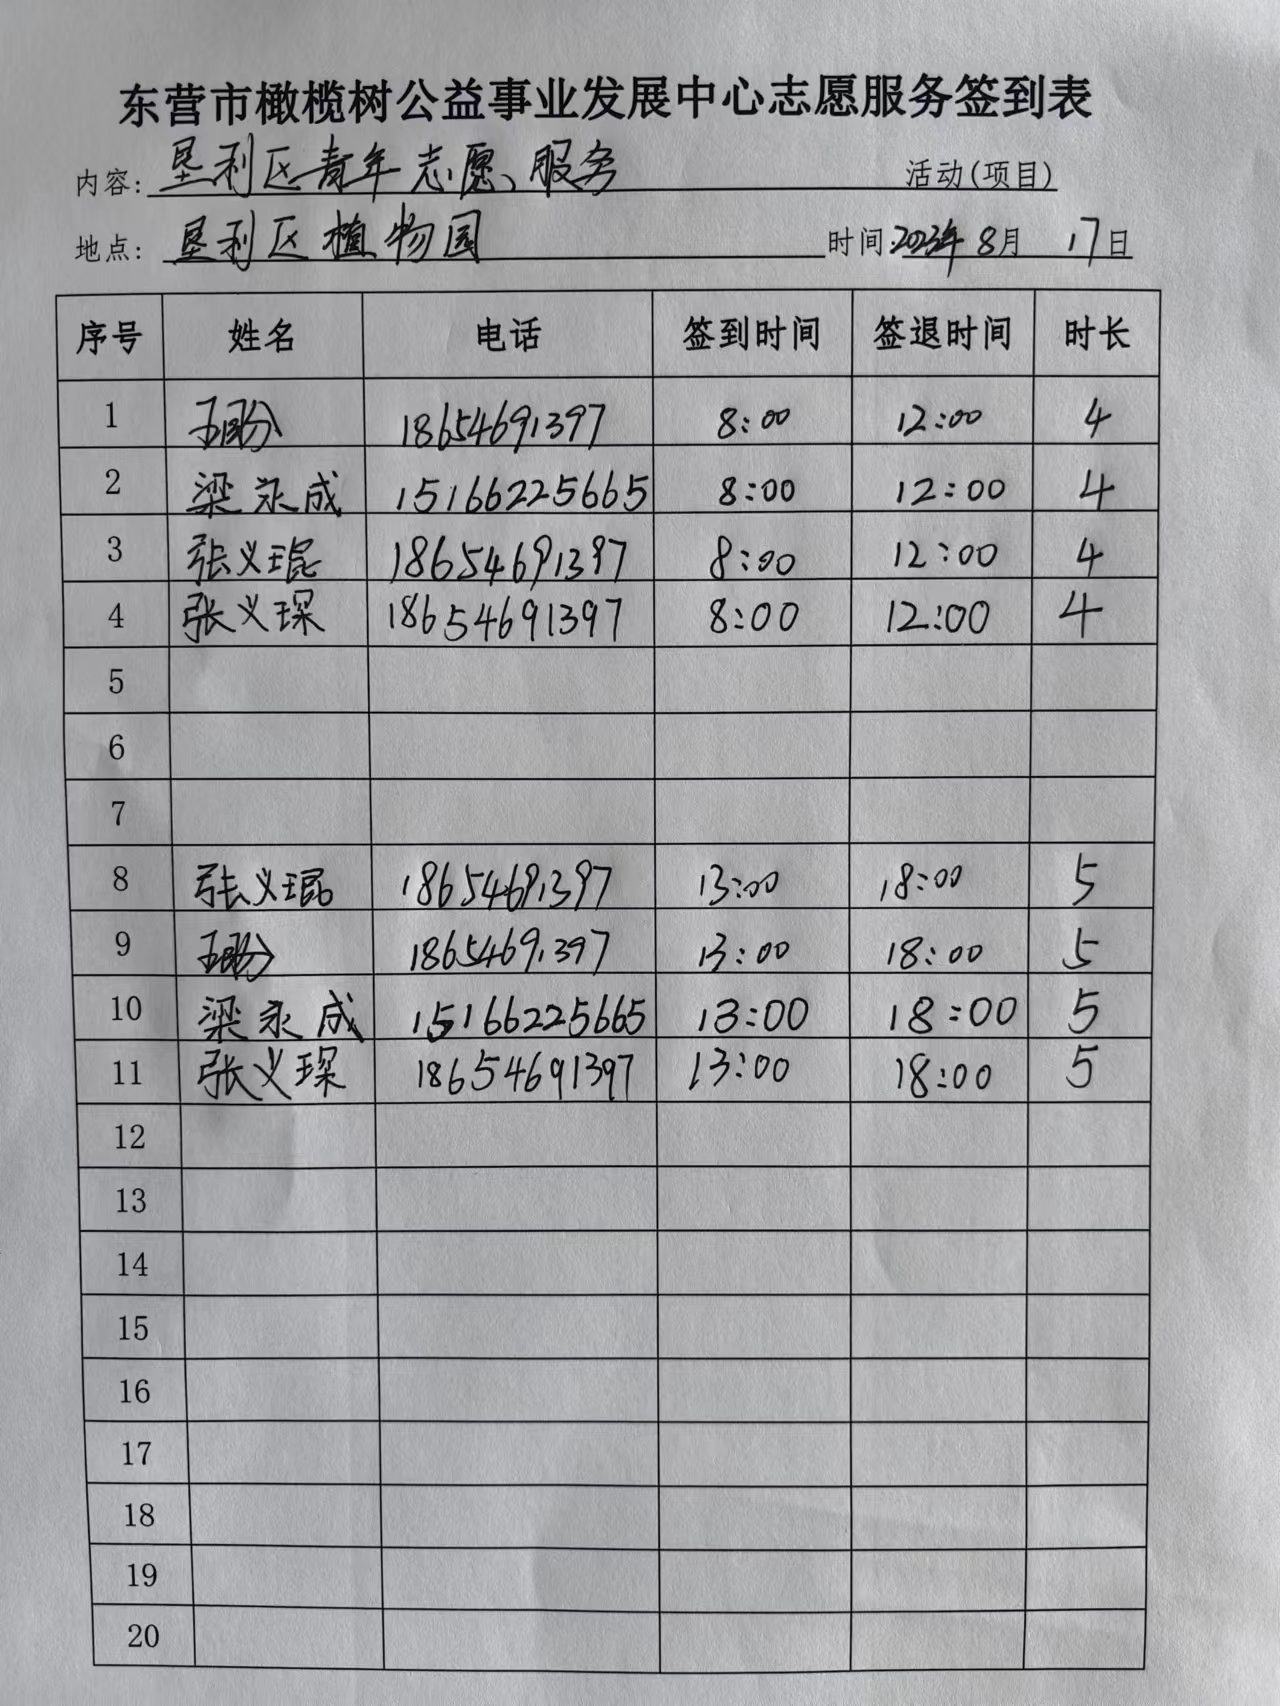 东营市橄榄树公益事业发展中心志愿服务签到表
内容: 垦利区青年志愿服务 活动(项目)
地点: 垦利区植物园 时间: 2023年 8月 17日
序号 姓名 电话 签到时间 签退时间 时长
1 18654691397 8:00 12:00 4
2 梁永成 15166225665 8:00 12:00 4
3 张义琨 18654691397 8:00 12:00 4
4 张义琛 18654691397 8:00 12:00 4
5
6
7
8 张义琨 18654691397 13:00 18:00 5
9 18654691397 13:00 18:00 5
10 梁永成 15166225665 13:00 18:00 5
11 张义琛 18654691397 13:00 18:00 5
12
13
14
15
16
17
18
19
20